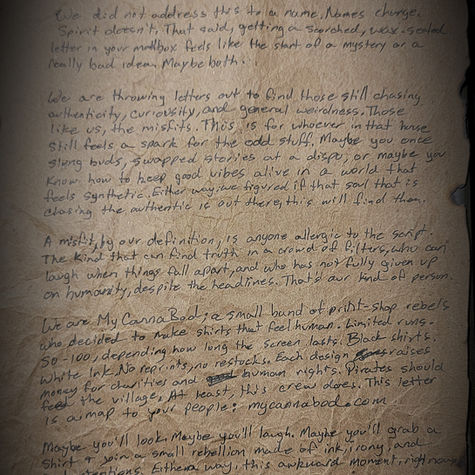 We did not address this to a name. Names change.
Spirit doesn't. That said, getting a scorched, wax-sealed
letter in your mailbox feels like the start of a mystery or a
really bad idea. Maybe both.
We are throwing letters out to find those still chasing
authenticity, curiousity, and general weirdness. Those
like us, the misfits. This is for whoever in that house
still feels a spark for the odd stuff. Maybe you once
slung buds, swapped stories at a dispo, or maybe you
know how to keep good vibes alive in a world that
feels synthetic. Either way, we figured if that soul that is
chasing the authentic is out there, this will find them.
A misfit, by our definition, is anyone allergic to the script.
The kind that can find truth in a crowd of filters, who can
laugh when things fall apart, and who has not fully given up
on humanity, despite the headlines. That's our kind of person.
We are MyCannaBod; a small band of print-shop rebels
who decided to make shirts that feel human. Limited runs.
50-100, depending how long the screen lasts. Black shirts.
White Ink. No reprints, no restocks. Each design raises
money for charities and human rights. Pirates should
feed the village. At least, this crew does. This letter
is a map to your people: mycannabod.com
Maybe you'll look. Maybe you'll laugh. Maybe you'll grab a
shirt & join a small rebellion made of ink, irony, and
intentions. Either way, this awkward moment, right now